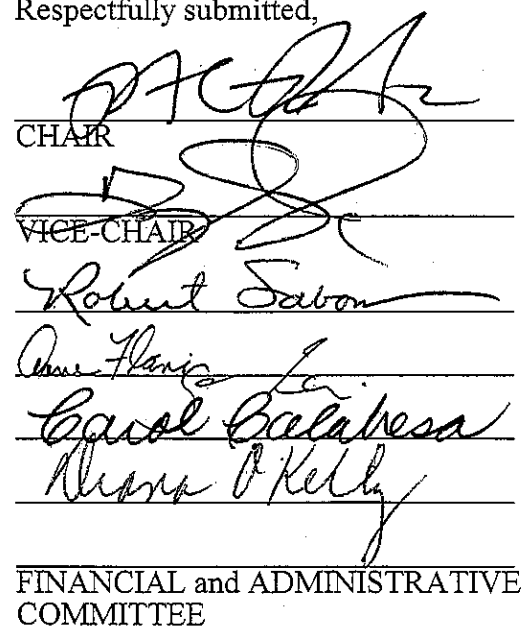 Respectfully submitted,
CHAIR
VICE-CHAIR
Robert Sabon
Anne
Carol Calabresa
Diana O'Kelly
FINANCIAL and ADMINISTRATIVE
COMMITTEE